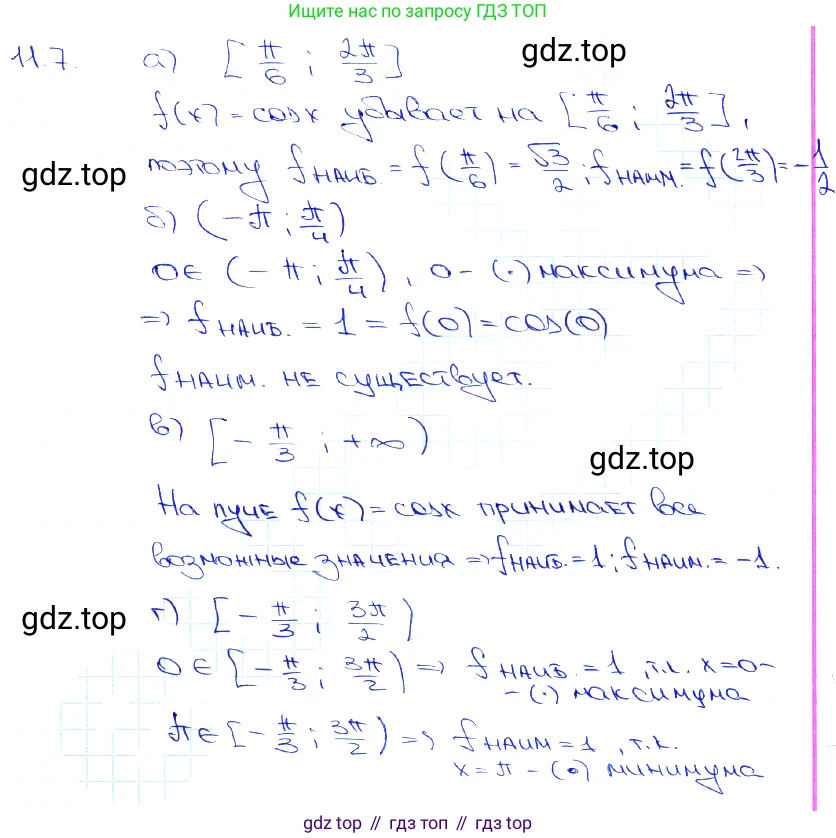 Ищите нас по запросу ГДЗ ТОП
11.7. а) [π/6 ; 2π/3]
gdz.top
f(x) = cosx убывает на [π/6 ; 2π/3],
gdz.top
поэтому f наиб. = f(π/6) = √3/2 ; f наим. = f(2π/3) = -1/2
б) (-π ; π/4)
0 ∈ (-π ; π/4), 0 - (·) максимума =>
=> f наиб. = 1 = f(0) = cos(0)
f наим. не существует.
в) [-π/3 ; +∞)
gdz.top
На луче f(x) = cosx принимает все
возможные значения => f наиб. = 1 ; f наим. = -1.
gdz.top
г) [-π/3 ; 3π/2)
0 ∈ [-π/3 ; 3π/2) => f наиб. = 1, т.к. x=0-
- (·) максимума
π ∈ [-π/3 ; 3π/2) => f наим = 1, т.к.
x = π - (·) минимума
gdz.top // гдз топ // gdz top